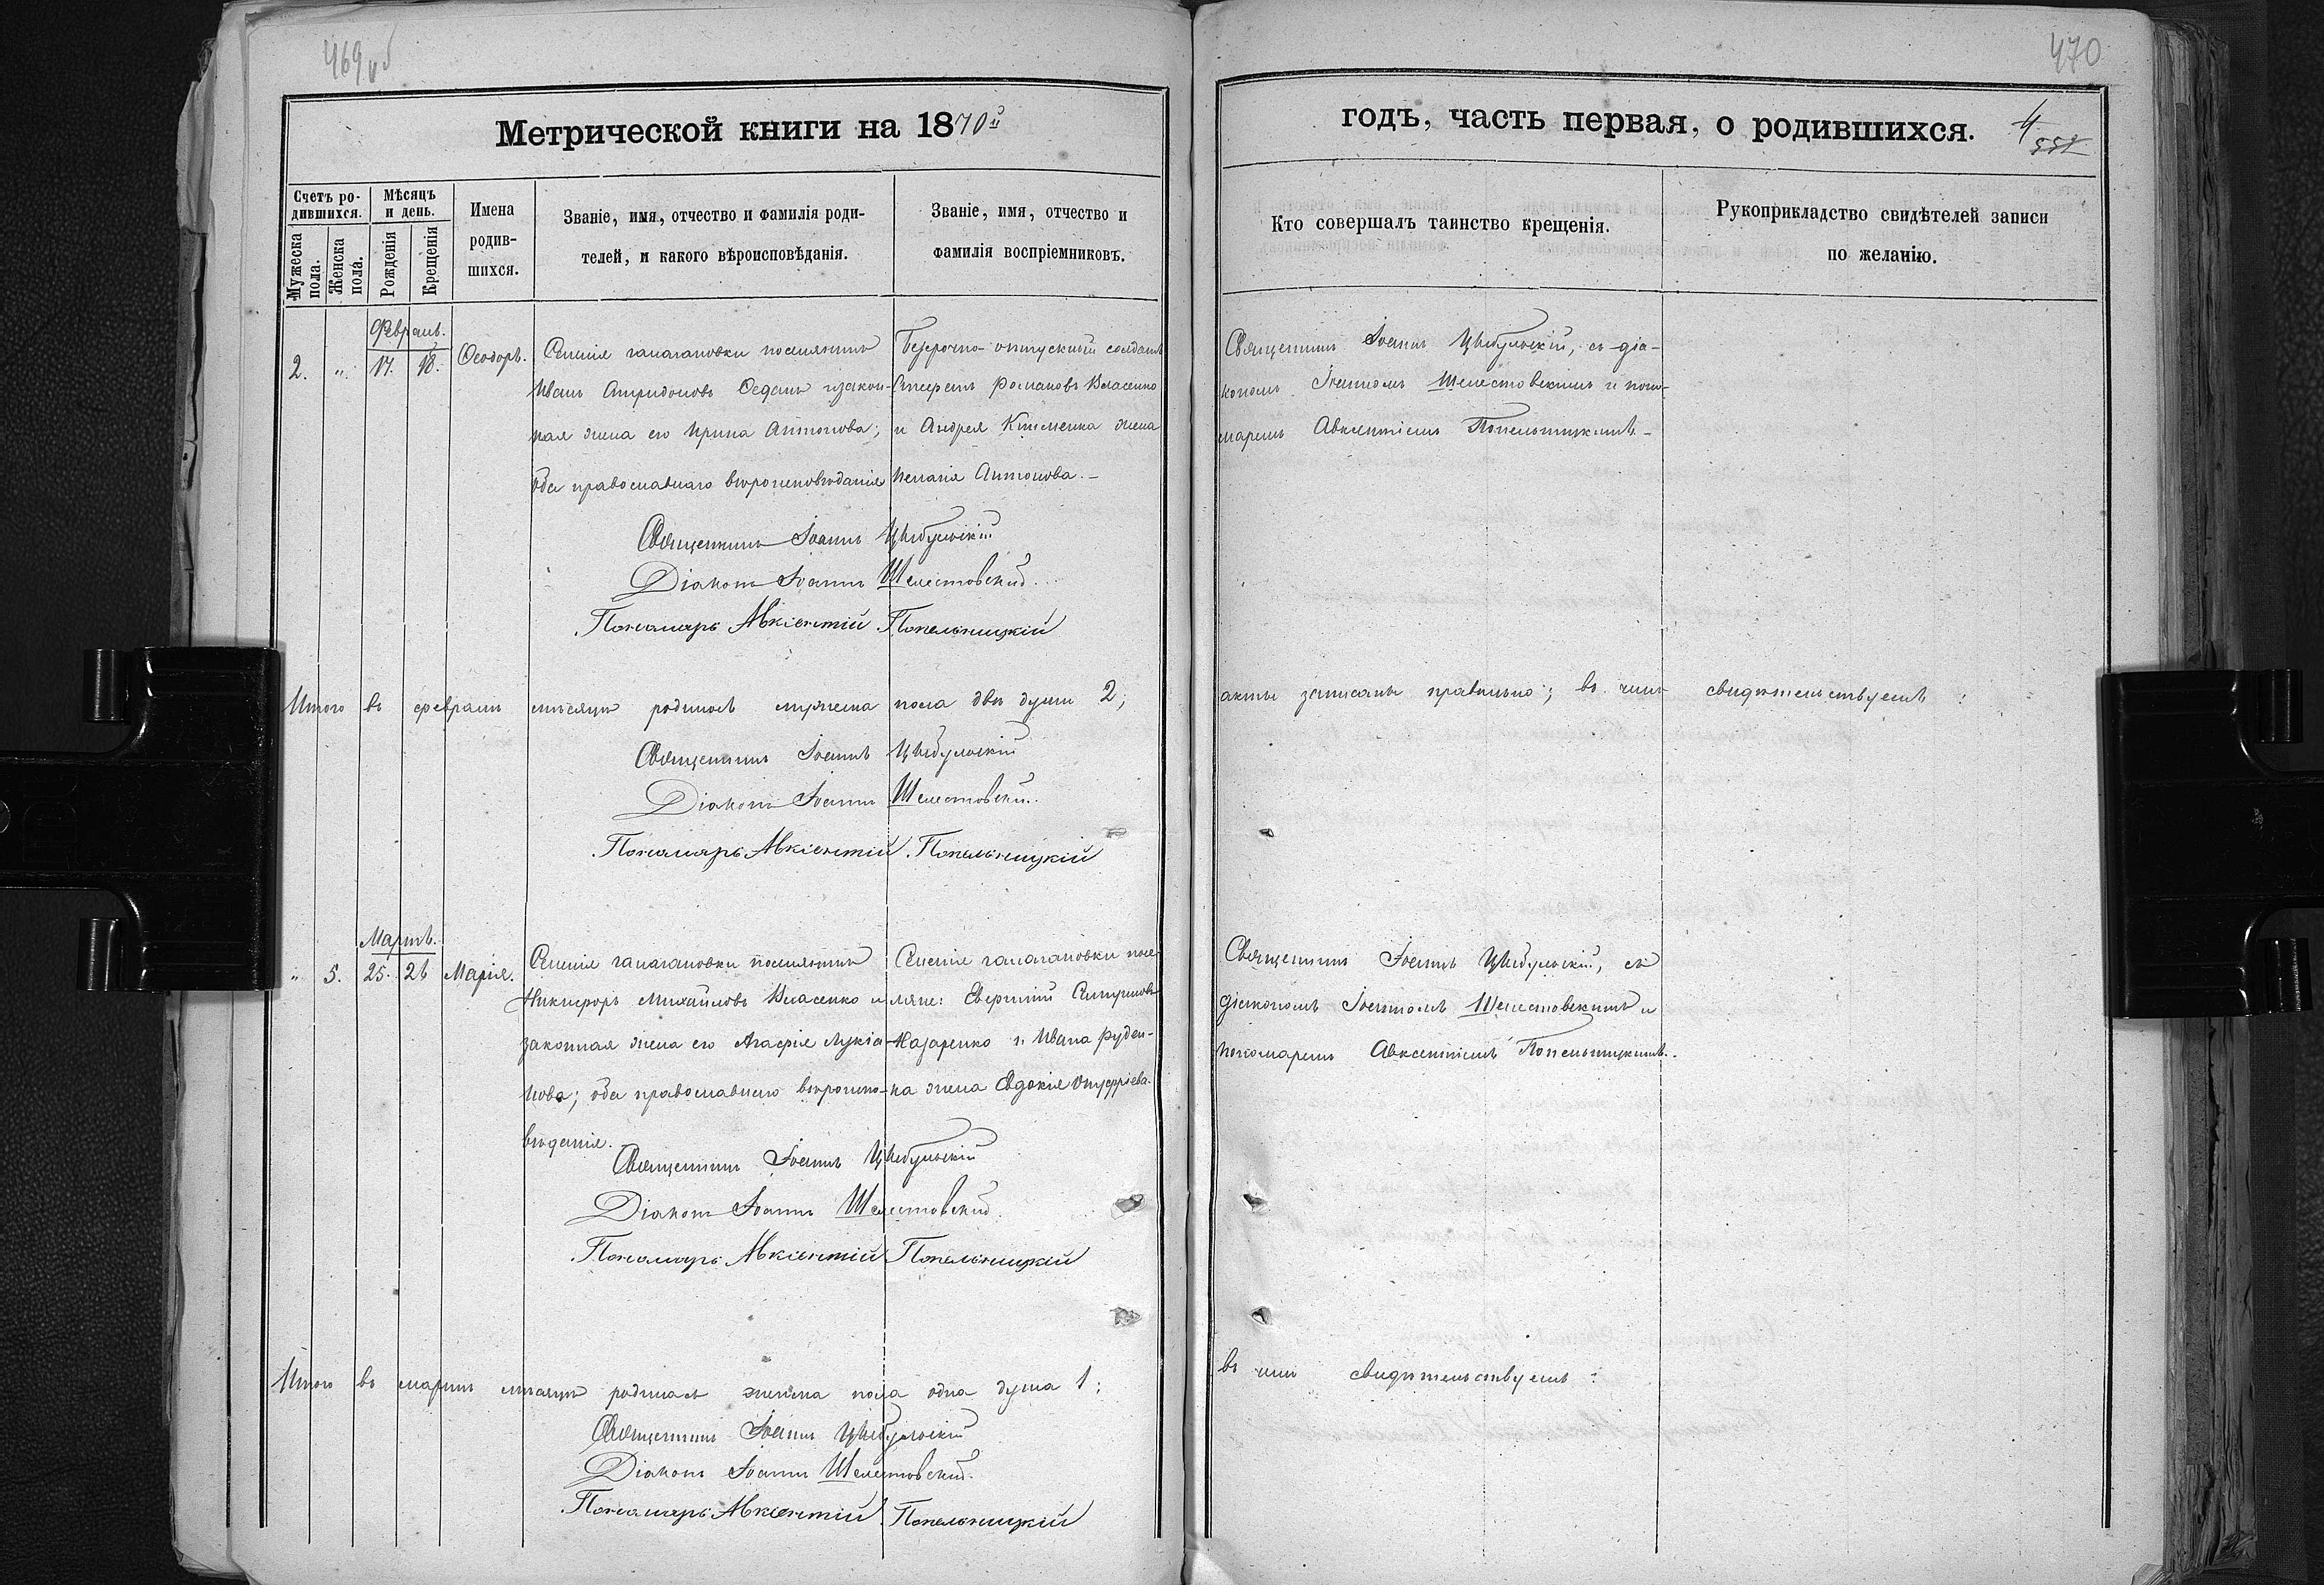 469 об
470
Метрической книги на 1870й
годъ, часть первая, о родившихся.
4
Счетъ родившихся.
Мѣсяцъ и день.
Мужеска пола.
Женска пола.
Рожденія
Крещенія
Имена родившихся.
Званіе, имя, отчество и фамилія родителей, и какого вѣроисповѣданія.
Званіе, имя, отчество и фамилія воспріемниковъ.
Кто совершалъ таинство крещенія.
Рукоприкладство свидѣтелей записи по желанію.
Февраль.
2. " 17. 18. Ѳеодоръ.
Селенія галагановки поселянинъ
Иванъ Спиридоновъ Седанъ и закон-
ная жена его Ирина Антонова;
оба православнаго вѣроисповѣданія
Безсрочно-отпускный солдатъ
Романовъ Власенко
и Андрея Клименка жена
Пелагія Антонова.-
Священникъ Іоаннъ Цыбульскій, съ діа-
кономъ Іоанномъ Шелестовскимъ и поно-
маремъ Авксентіемъ Попельницкимъ.-
Священникъ Іоаннъ Цыбульскій
Діаконъ Іоаннъ Шелестовский.
Пономарь Авксентій Попельницкій
Итого въ февралѣ мѣсяцѣ родилось мужеска пола двѣ души 2; акты записаны правильно; въ чемъ свидѣтельствуемъ:
Священникъ Іоаннъ Цыбульскій
Діаконъ Іоаннъ Шелестовский.
Пономарь Авксентій Попельницкій
Мартъ.
" 5. 25. 26 Марія.
Селенія галагановки поселянинъ
Никифоръ Михайловъ Власенко и
законная жена его Агафія Лукіа-
нова; оба православнаго вѣроиспо-
вѣданія.
Селенія галагановки посе-
ляне:
Назаренко и Ивана Руден-
ка жена Евдокія Онуфріева.
Священникъ Іоаннъ Цыбульскій, съ
діакономъ Іоанномъ Шелестовскимъ и
пономаремъ Авксентіемъ Попельницкимъ.
Священникъ Іоаннъ Цыбульскій
Діаконъ Іоаннъ Шелестовский.
Пономарь Авксентій Попельницкій
Итого въ мартѣ мѣсяцѣ родилась женска пола одна душа 1; въ чемъ свидѣтельствуемъ:
Священникъ Іоаннъ Цыбульскій
Діаконъ Іоаннъ Шелестовский.
Пономарь Авксентій Попельницкій